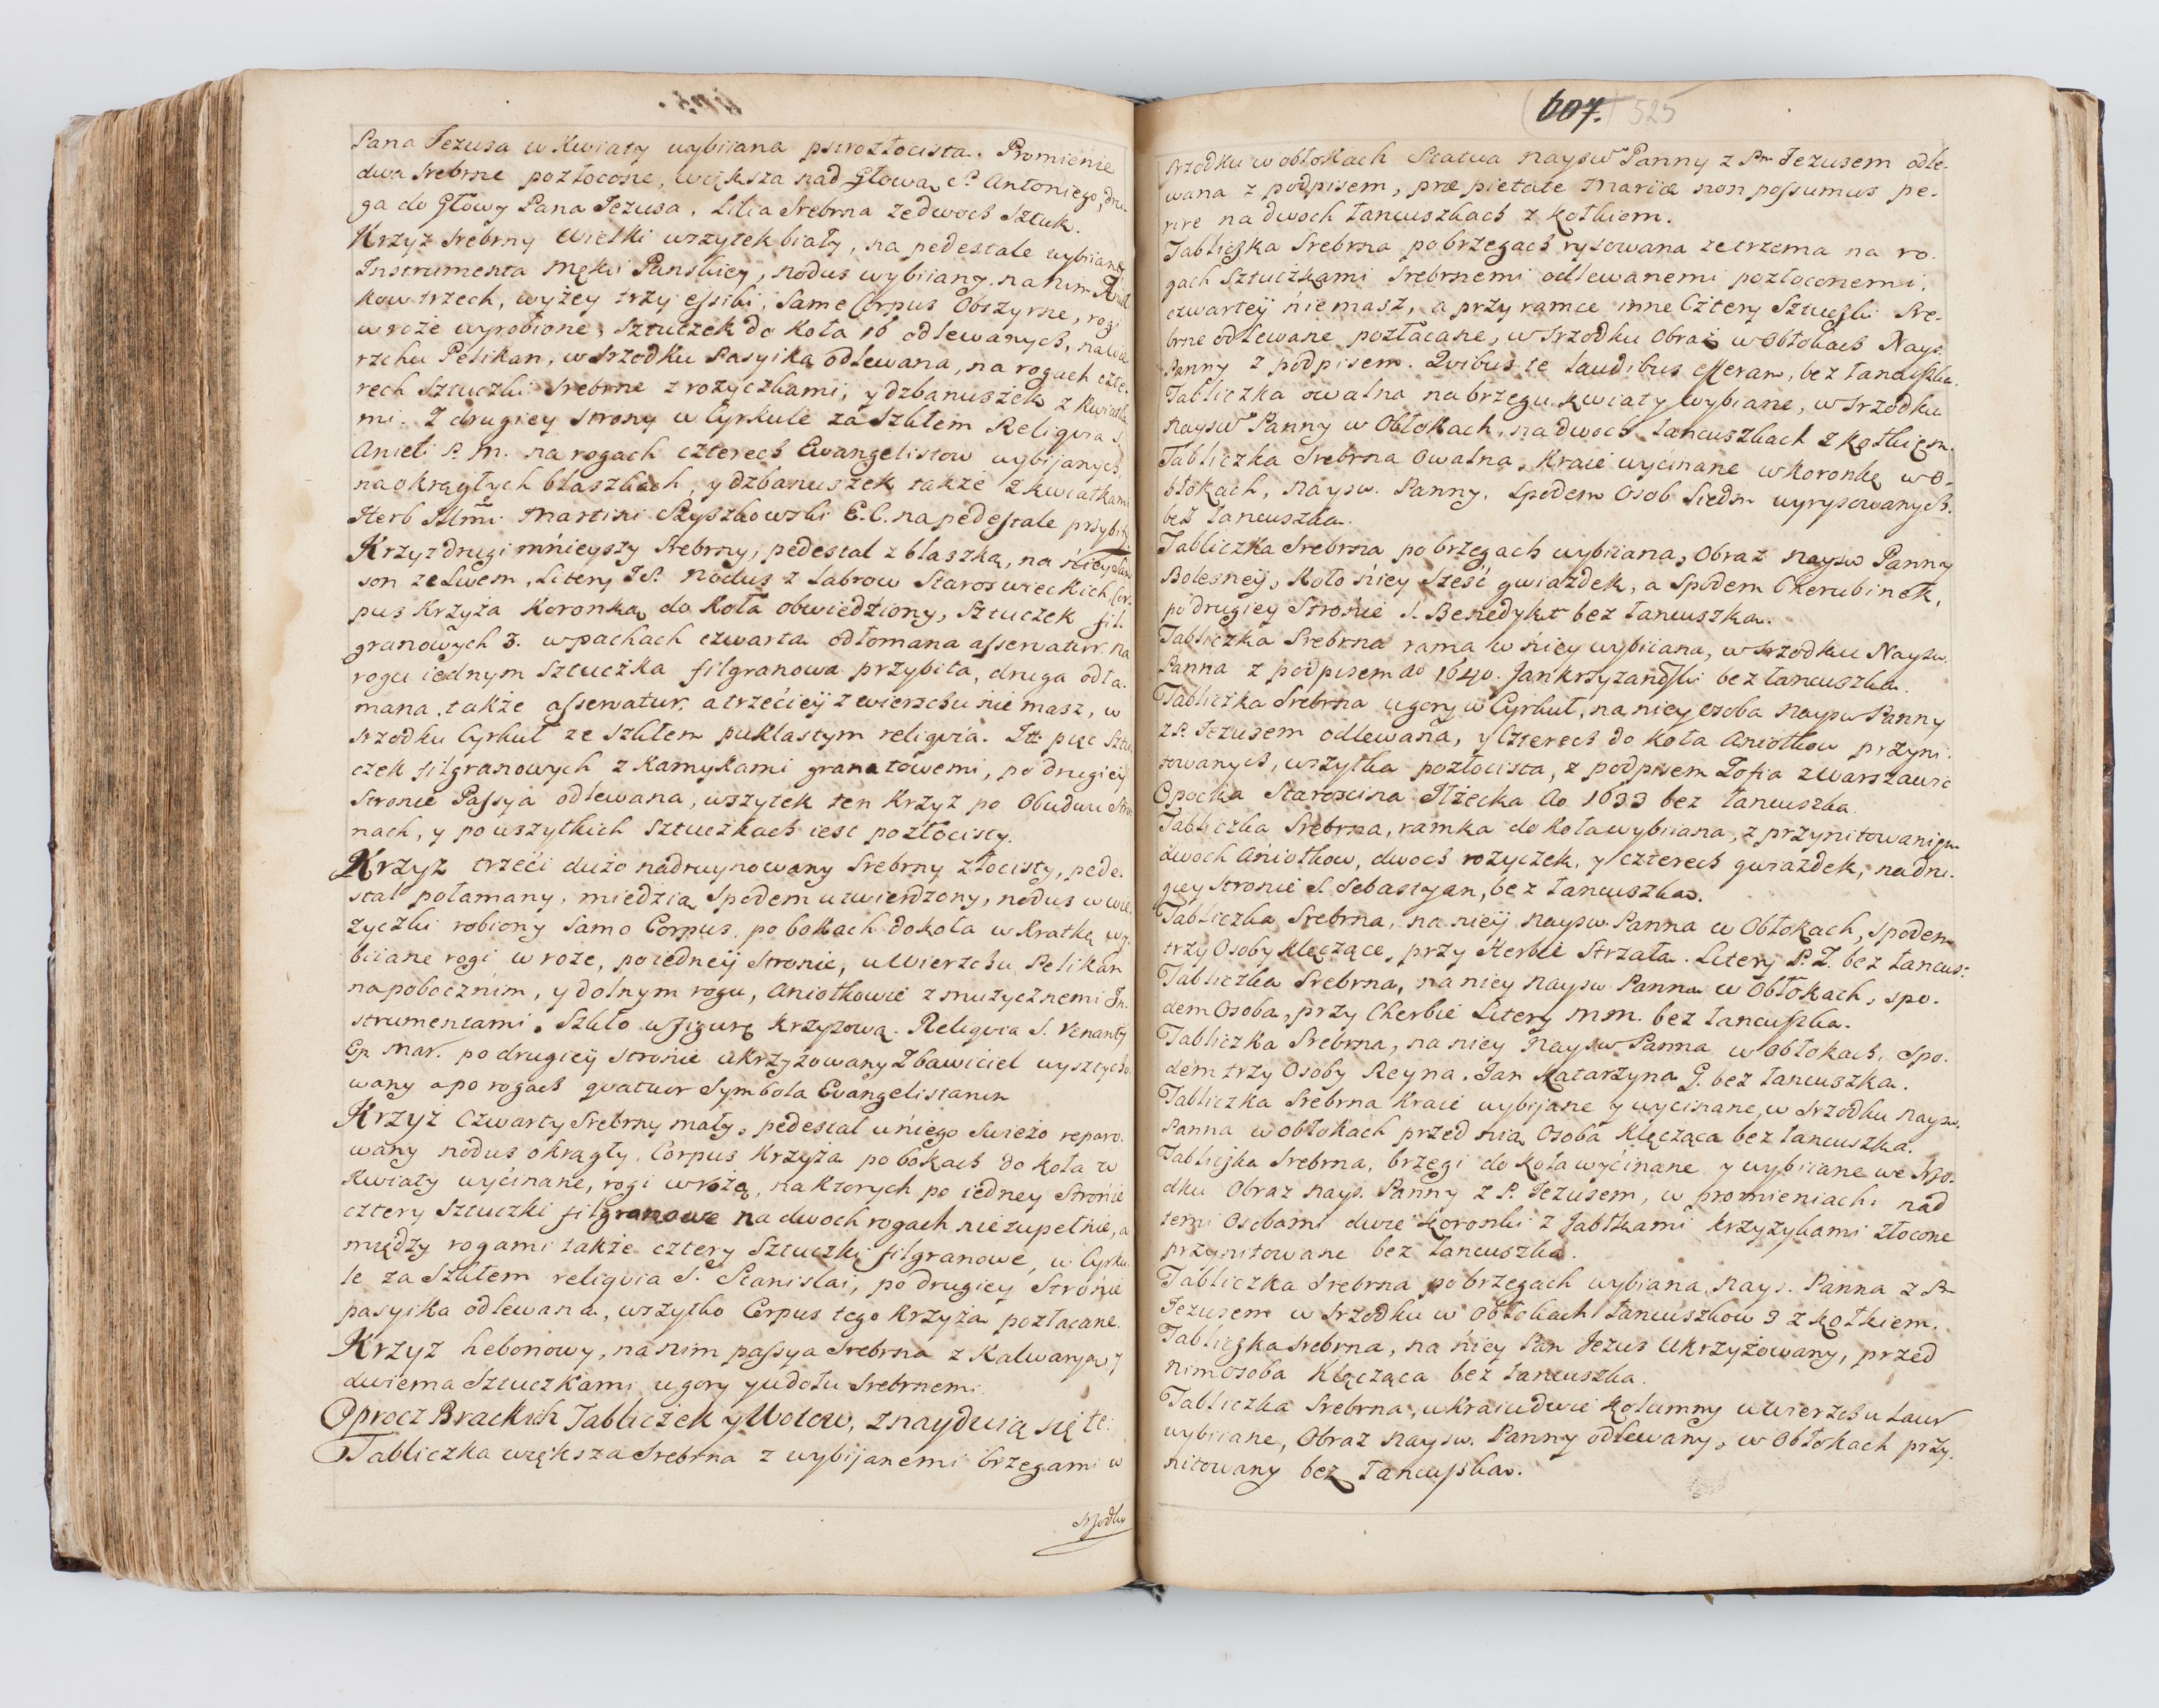 Pana Jezusa w Kwiaty wybiiana pstrozłocista. Promienie
dwa srebrne pozłocone, większa nad Głową S. Antoniego, dru-
ga do Głowy Pana Jezusa. Lilia srebrna ze dwoch Sztuk.
Krzyż srebrny Wielki wszytek biały, na pedestale wybiiane
Instrumenta Męki Panskiey, nodus wybiiany, na nim
kow trzech, wyżey trzy essiki, Same Corpus Obszyrne, rogi
w roże wyrobione, Sztuczek do koła 16 odlewanych, na wie
rzchu Pelikan, w srzodku Pasyika odlewana, na rogach czte-
rech Sztuczki srebrne z rożyczkami, y dzbanuszek z kwiatka
mi. Z drugiey strony w Cyrkule za Szkłem Religvia S.
Anieli P. M. na rogach czterech Ewangelistow wybijanych
na okrągłych blaszkach, y dzbanuszek także z kwiatkami
Herb Illmi Martini Szyszkowski E. C. na pedestale przybity
Krzyż drugi mnieyszy srebrny, pedestal z blaszką, na niey Sam
son ze Lwem, Litery J S. nodus z Labrow Staroswieckich Cor-
pus Krzyża Koronką do koła obwiedziony, Sztuczek fil-
granowych 3. w pachach czwarta odłomana asservatur. na
rogu iednym Sztuczka filgranowa przybita, druga odła-
mana także asservatur, a trzeciey z wierzchu nie masz, w
srzodku Cyrkuł ze Szkłem puklastym religvia. Itt pięć Sztu
czek filgranowych z kamykami granatowemi, po drugiey
Stronie Passya odlewana, wszytek ten Krzyż po Obudwu Stro
nach, y po wszytkich Sztuczkach iest pozłocisty.
Krzyż trzeci dużo nadruynowany srebrny złocisty, pede-
stal połamany, miedzią Spodem utwierdzony, nodus w wie
życzki robiony Samo Corpus po bokach dokoła w kratkę wy-
biiane rogi w roże, po iedney Stronie, u Wierzchu Pelikan
na pobocznim, y dolnym rogu, Aniołkowie z muzycznemi In-
strumentami. Szkło w figurę krzyżową. Religvia S. Venanty
Ep. Mar. po drugiey stronie ukrzyżowany Zbawiciel wysztycho
wany a po rogach qvatuor Symbola Evangelistarum
Krzyż Czwarty Srebrny mały, pedestal u niego swieżo reparo-
wany nodus okrągły. Corpus Krzyża po bokach do koła w
Kwiaty wycinane, rogi w rożę, na ktorych po iedney Stronie
cztery Sztuczki filgranowe na dwoch rogach nie zupełnie, a
między rogami także cztery Sztuczki filgranowe, w Cyrku-
le za Szkłem religvia S. Stanislai, po drugiey Stronie
pasyika odlewana, wszytko Corpus tego Krzyża pozłacane.
Krzyż hebonowy, na nim passya srebrna z Kalwaryą, y
dwiema Sztuczkami u gory y u dołu srebrnemi
Oprocz Brackich Tabliczek y Wotow, znayduią się te:
Tabliczka większa srebrna z wybijanemi brzegami w
srzodku
607. 525
srzodku w obłokach Statua Nayśw Panny z Pm Jezusem odle-
wana z podpisem, præ pietate Mariæ non possumus pe-
rire na dwoch łancuszkach z kołkiem.
Tabliczka Srebrna po brzegach rysowana ze trzema na ro-
gach Sztuczkami srebrnemi odlewanemi pozłoconemi,
czwartey nie masz, a przy ramce inne Cztery Sztuczki Sre-
brne odlewane pozłacane, w srzodku Obraz w Obłokach Nays.
Panny z podpisem. Qvibus te laudibus efferam, bez łancuszka.
Tabliczka owalna na brzegu kwiaty wybiane, w srzodku
Nayśw Panny w Obłokach, na dwoch łancuszkach z kołkiem.
Tabliczka Srebrna Owalna, Kraie wycinane w koronkę w O-
błokach, Nayśw. Panny. Spodem Osob Siedm wyrysowanych.
bez łancuszka.
Tabliczka Srebrna po brzegach wybiiana, Obraz Nayśw Panny
Bolesney, Koło niey Sześć gwiazdek, a Spodem Cherubinek,
po drugiey Stronie S. Benedykt bez łancuszka.
Tabliczka Srebrna rama w niey wybiiana, w srzodku Nayśw.
Panna z podpisem Ao 1640. Jan Krzyżanowski bez łancuszka.
Tabliczka Srebrna u gory w Cyrkuł, na niey osoba Nayśw Panny
z P. Jezusem odlewana, y Czterech do koła Aniołkow przyni-
towanych, wszytka pozłocista, z podpisem Zofia z Warszawic
Opocka Starościna Iłżecka Ao 1633 bez łancuszka.
Tabliczka Srebrna, ramka do koła wybiiana, z przynitowaniem
dwoch Aniołkow, dwoch rożyczek, y czterech gwiazdek, na dru-
giey stronie S. Sebastyan, bez łancuszka.
Tabliczka Srebrna, na niey Nayśw. Panna w Obłokach, spodem
trzy Osoby klęczące, przy Herbie Strzała. Litery P. Z. bez łancus:
Tabliczka Srebrna, na niey Nayśw Panna w Obłokach, spo-
dem Osoba, przy Cherbie Litery M M. bez łancuszka.
Tabliczka Srebrna, na niey Nayśw Panna w Obłokach, Spo-
dem trzy Osoby Reyna. Jan Katarzyna G. bez łancuszka.
Tabliczka Srebrna Kraie wybijane y wycinane, w srzodku Nayśw.
Panna w obłokach przed nią Osoba Klęcząca bez łancuszka.
Tabliczka Srebrna, brzegi do koła wycinane y wybiiane we srzo-
dku Obraz Nayś. Panny z P. Jezusem, w promieniach, nad
temi Osobami dwie koronki z Jabłkami krzyżykami złocone
przynitowane bez łancuszka.
Tabliczka Srebrna po brzegach wybiana, Nays. Panna z Pm
Jezusem w srzodku w Obłokach łancuszkow 3 z kołkiem.
Tabliczka srebrna, na niey Pan Jezus Ukrzyżowany, przed
nim osoba Klęcząca bez łancuszka.
Tabliczka Srebrna, w kraiu dwie kolumny u wierzchu Laur
wybiiane, Obraz Nayśw. Panny odlewany, w Obłokach przy-
nitowany bez łancuszka.